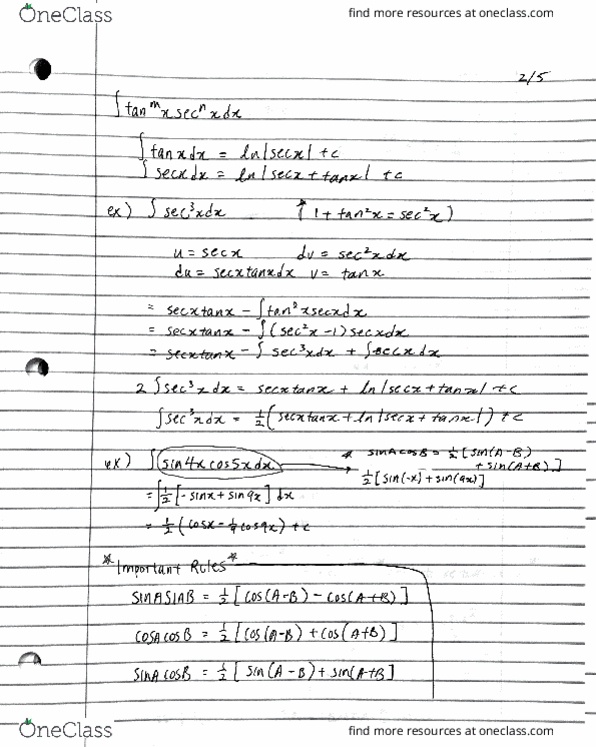 OneClass
find more resources at oneclass.com
2/5
∫tanᵐx secⁿx dx
∫tanx dx = ln|secx| +c
∫secx dx = ln|secx + tanx| +c
ex) ∫sec³x dx * (1 + tan²x = sec²x)
u = secx dv = sec²x dx
du = secxtanx dx v = tanx
= secxtanx - ∫tan²x secx dx
= secxtanx - ∫(sec²x - 1) secx dx
= secxtanx - ∫sec³x dx + ∫secx dx
2∫sec³x dx = secxtanx + ln|secx + tanx| +c
∫sec³x dx = ½(secxtanx + ln|secx + tanx|) +c
ex) ∫sin4x cos5x dx * sinAcosB = ½[sin(A-B) + sin(A+B)]
½[sin(-x) + sin(9x)]
= ∫½[-sinx + sin9x] dx
= ½(cosx - 1/9 cos9x) +c
*Important Rules*
SINASINB = ½[cos(A-B) - cos(A+B)]
COSACOSB = ½[cos(A-B) + cos(A+B)]
SINACOSB = ½[sin(A-B) + sin(A+B)]
OneClass
find more resources at oneclass.com